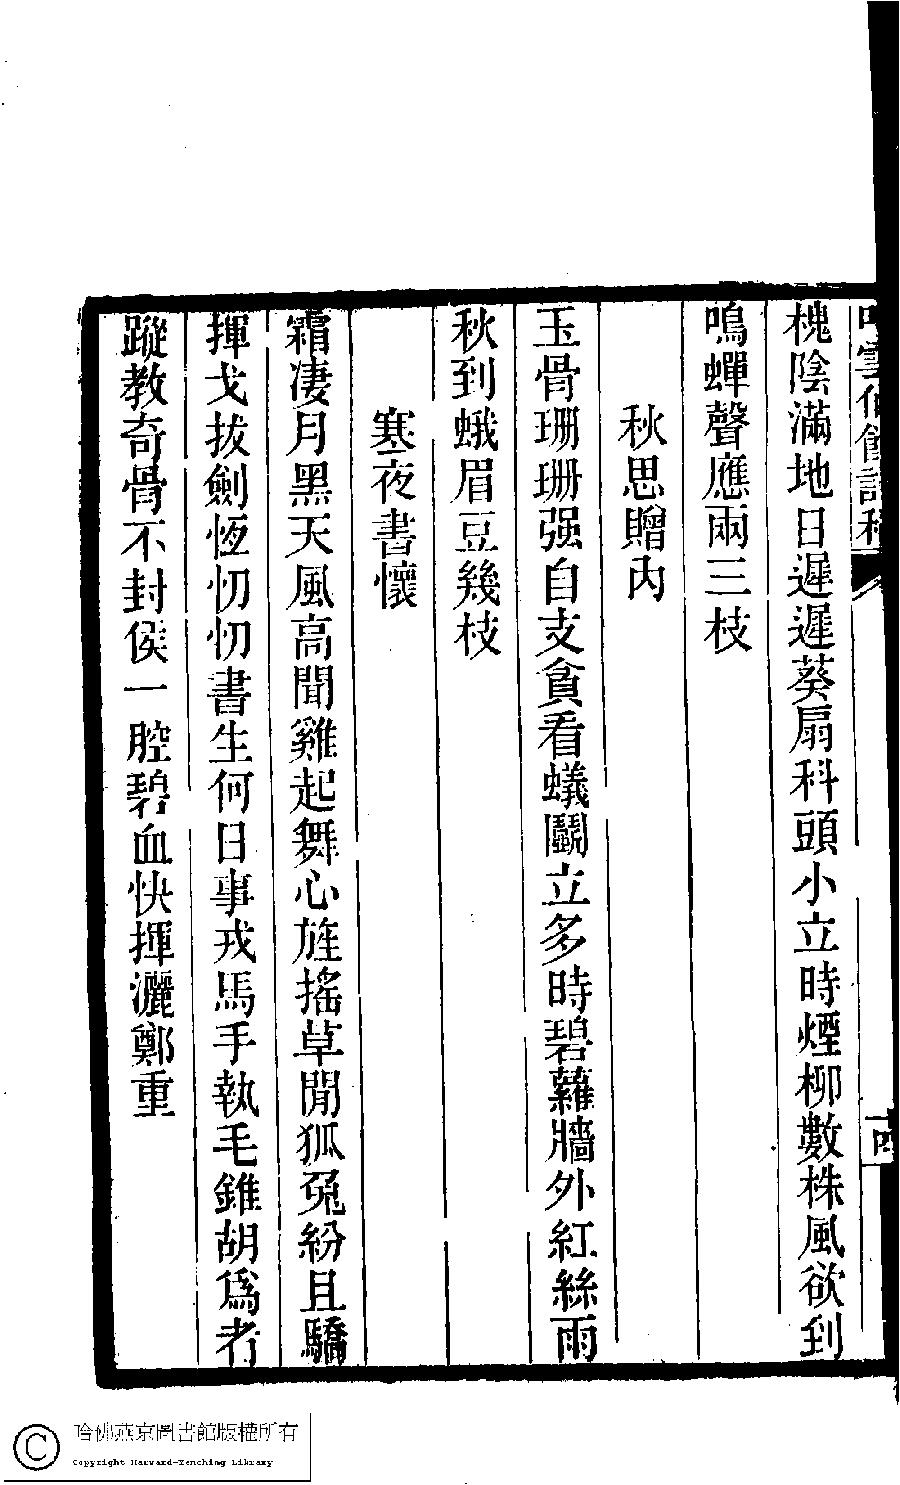 槐陰滿地日遲遲葵扇科頭小立時煙柳數株風欲到
鳴蟬聲應兩三枝
秋思贈內
玉骨珊珊强自支貪看蟻鬬立多時碧蘿牆外紅絲雨
秋到蛾眉豆幾枝
寒夜書懷
霜淒月黑天風高聞雞起舞心旌搖草閒狐兔紛且驕
揮戈拔劍恆忉忉書生何日事戎馬手執毛錐胡爲者
蹤教奇骨不封侯一腔碧血快揮灑鄭重
哈佛燕京圖書館版權所有
Copyright Harvard-Yenching Library